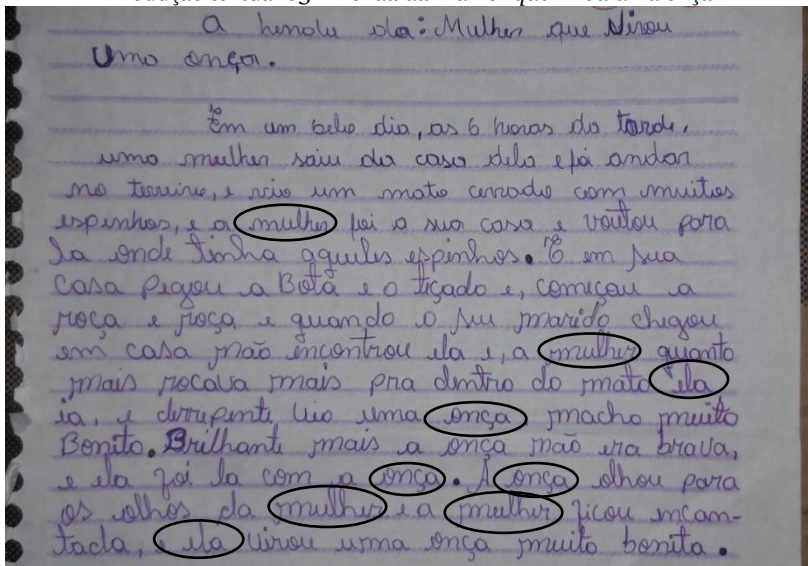 A henda da: Mulher que Virou
Uma onça.
Em um belo dia, as 6 horas da tarde.
uma mulher saiu da casa dela e foi andar
no terrine, e viu um mato cerrado com muitos
espinhos, e a mulher foi a sua casa e voutou para
la onde tinha aqueles espinhos. E em sua
casa pegou a Bota e o tiçado e, começou a
roça e roça e quando o seu marido chegou
em casa não incontrou ela e, a mulher quanto
mais rocava mais pra dentro do mato ela
ia, e derrepente viu uma onça macho muito
Bonito. Brilhante mais a onça não era brava,
e ela foi la com a onça. A onça olhou para
os olhos da mulher e a mulher ficou incan-
tada, e ela virou uma onça muito bonita.